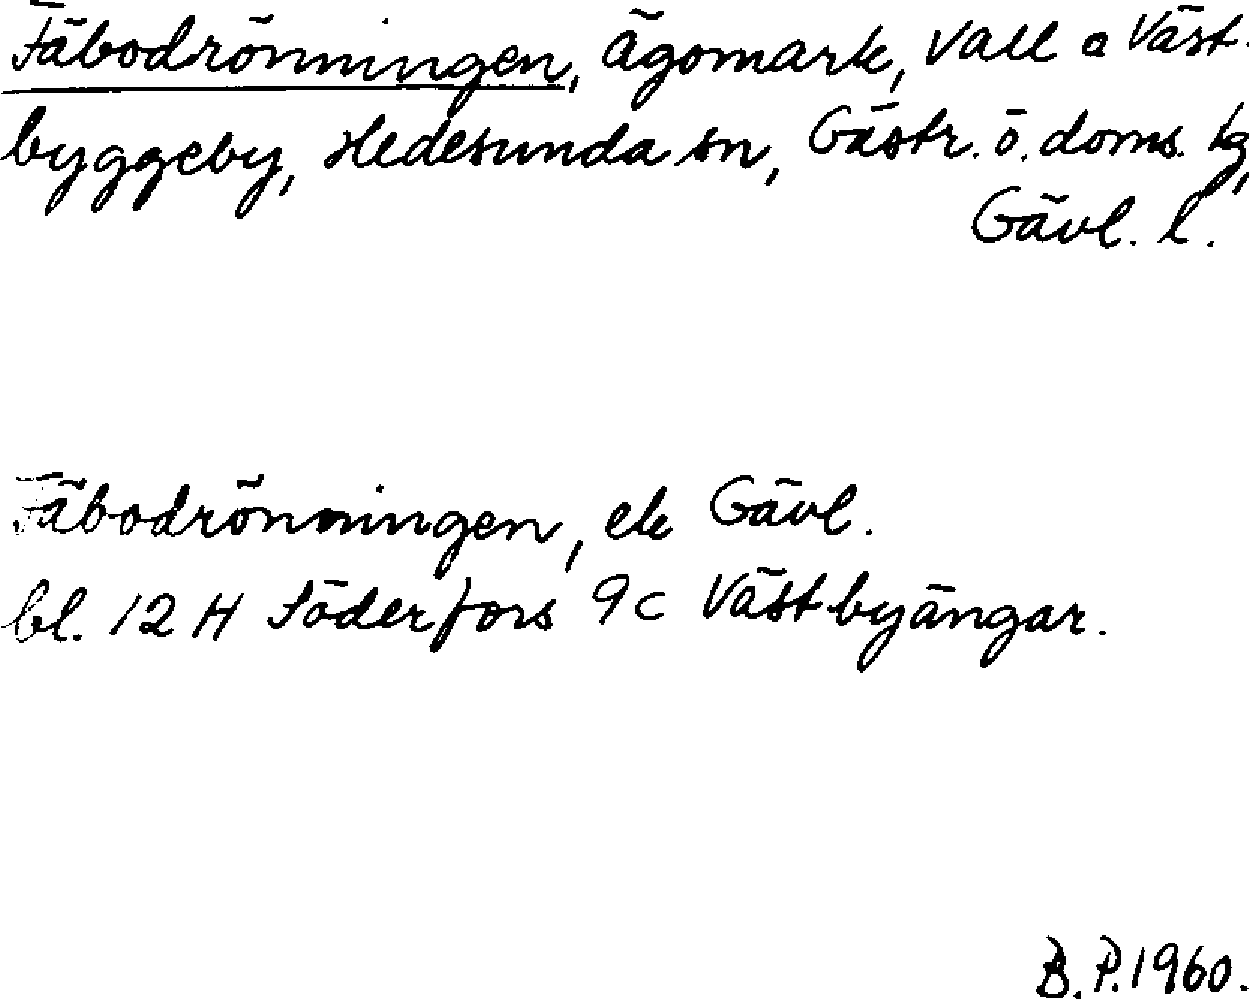 Fäbodrönningen, Ägomark, Vall o Väst-
byggeby, Hedesunda sn, Gästr. ö. doms. tg,
Gävl. l.
Fäbodrönningen, ek Gävl.
bl. 12 H Söderfors 9c Västbyängar.
B. P. 1960.